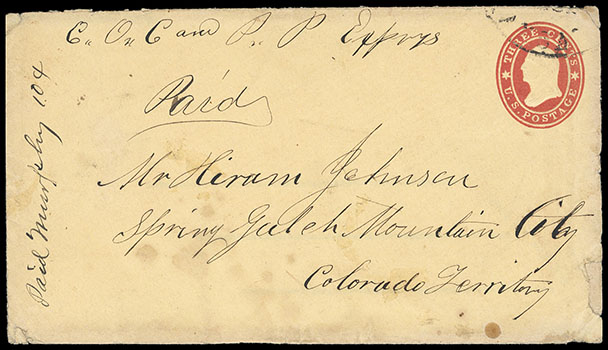 C. O. C and P. P Exprys
THREE CENTS
U.S. POSTAGE
Paid
Mr Hiram Johnson
Spring Gulch Mountain City
Colorado Territory
Paid Murphy 104